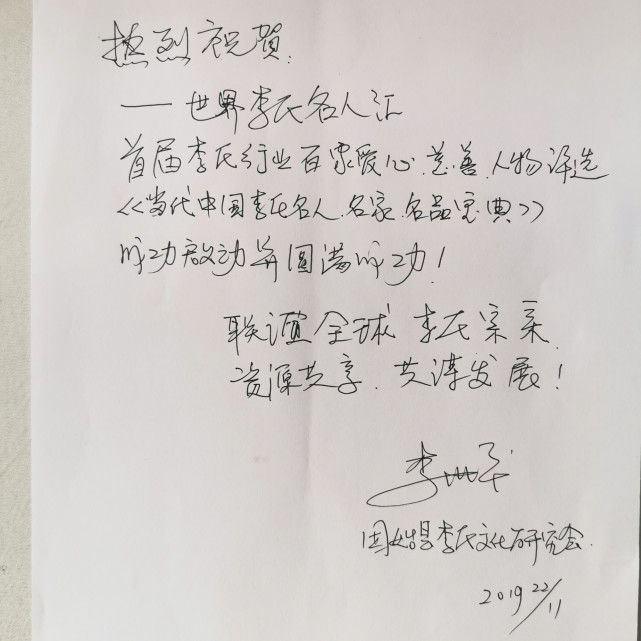 热烈祝贺:
——世界李氏名人汇
首届李氏行业百家爱心.慈善.人物评选
《当代中国李氏名人.名家.名品宝典》
成功启动并圆满成功!
联谊全球李氏宗亲.
资源共享.共谋发展!
李
固始县李氏文化研究会.
2019 22/11